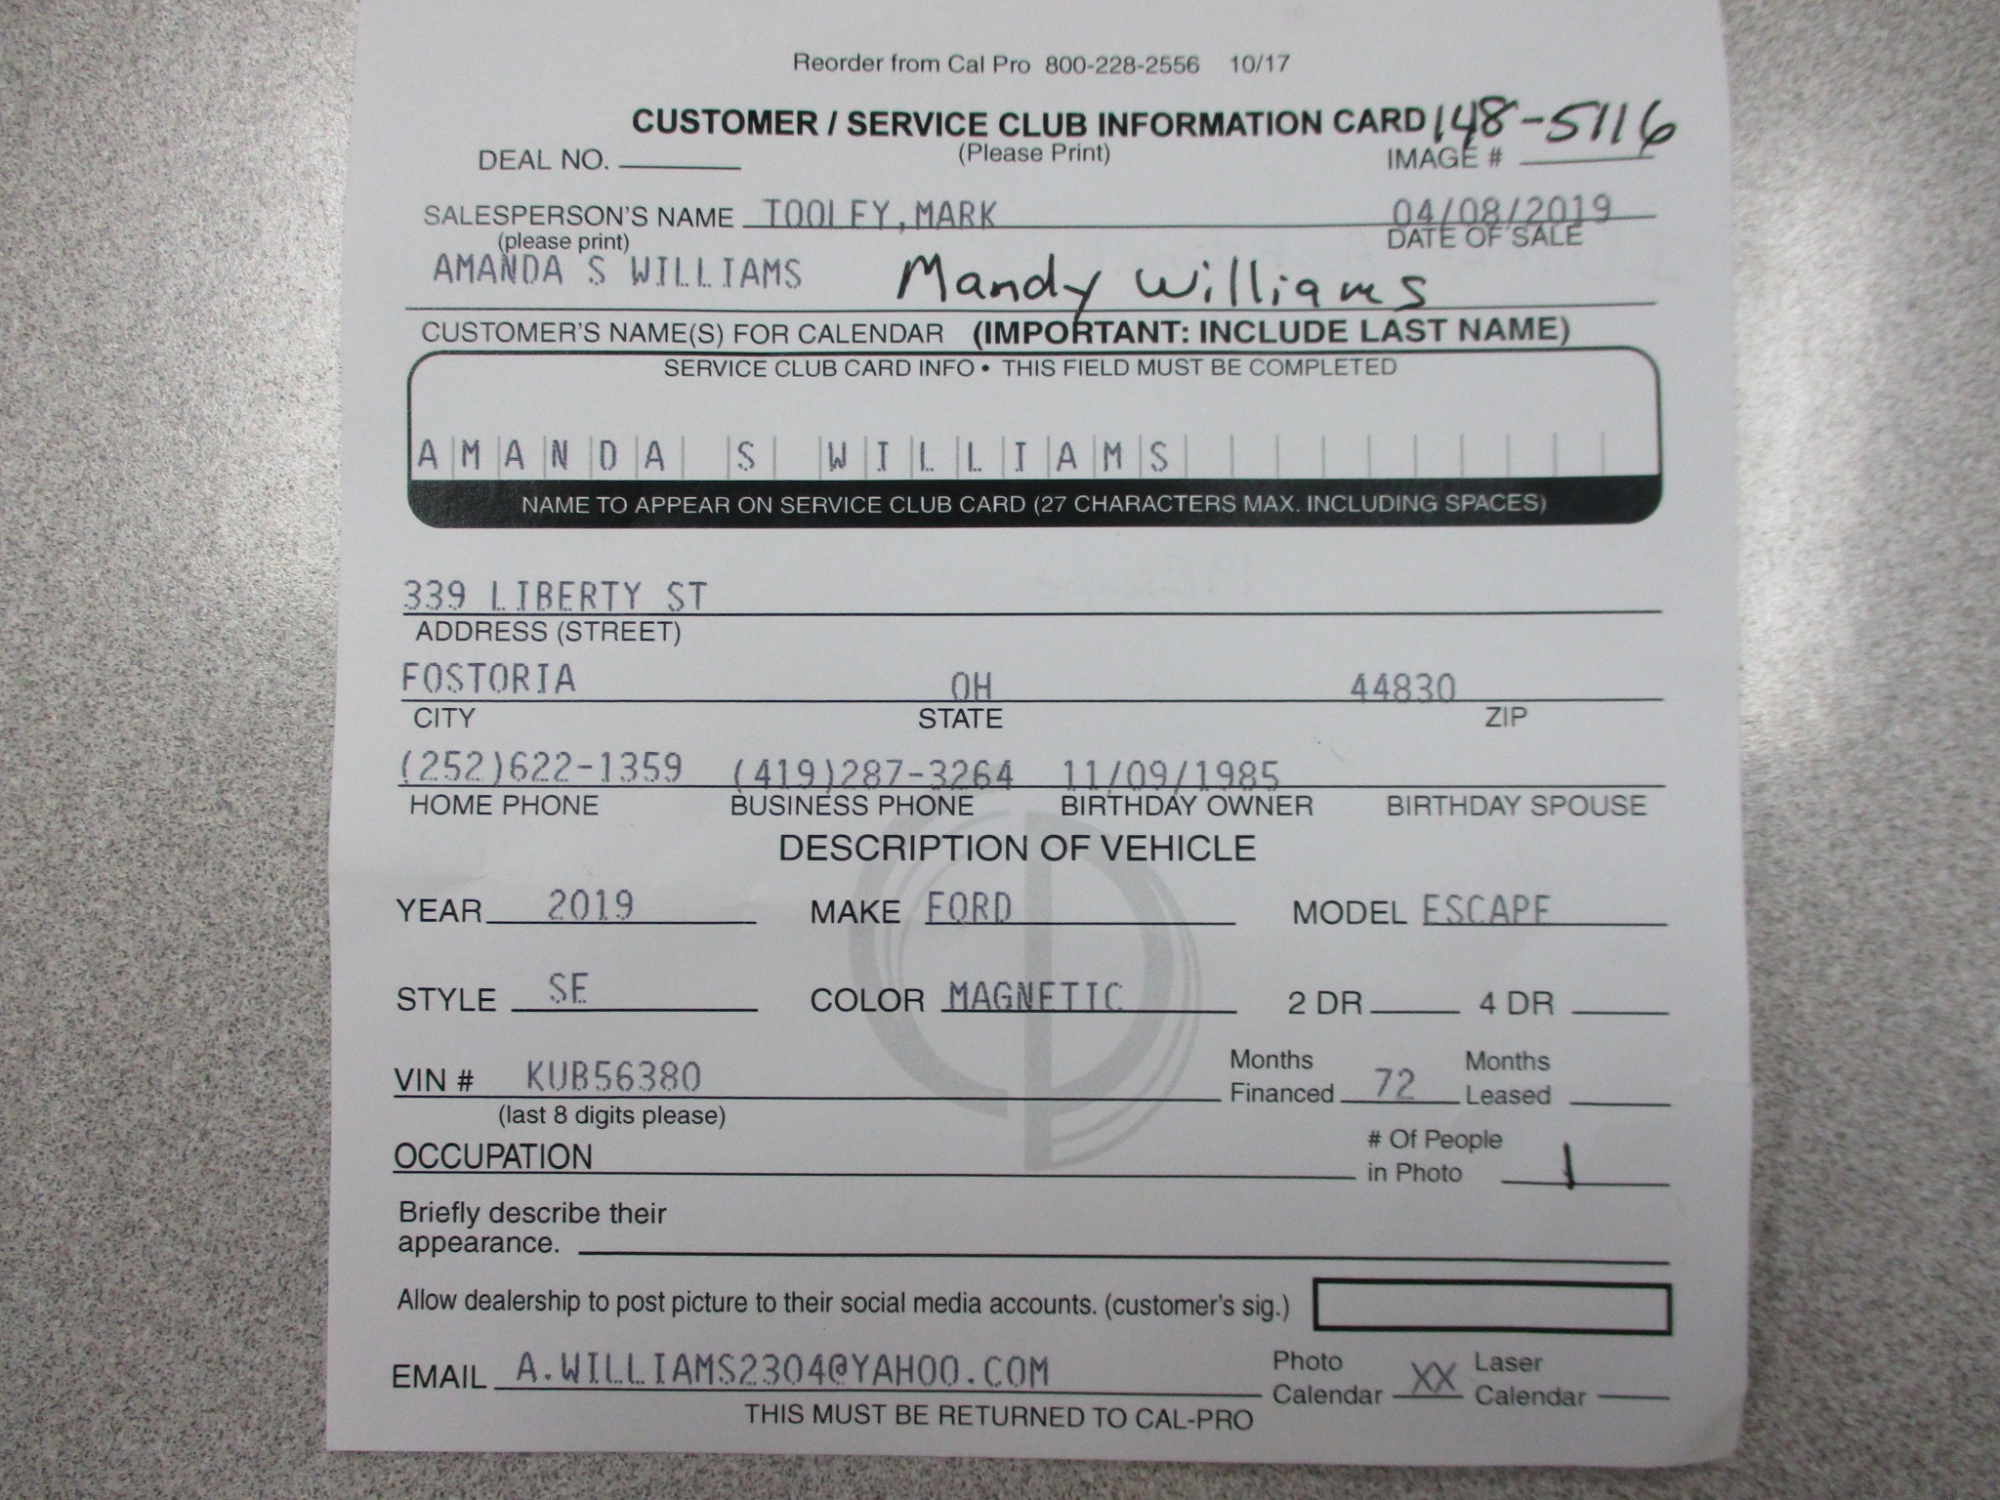 Reorder from Cal Pro 800-228-2556 10/17
CUSTOMER / SERVICE CLUB INFORMATION CARD 148-5116
DEAL NO. (Please Print) IMAGE #
SALESPERSON'S NAME TOOLEY,MARK 04/08/2019
(please print) DATE OF SALE
AMANDA S WILLIAMS Mandy Williams
CUSTOMER'S NAME(S) FOR CALENDAR (IMPORTANT: INCLUDE LAST NAME)
SERVICE CLUB CARD INFO • THIS FIELD MUST BE COMPLETED
AMANDA S WILLIAMS
NAME TO APPEAR ON SERVICE CLUB CARD (27 CHARACTERS MAX. INCLUDING SPACES)
339 LIBERTY ST
ADDRESS (STREET)
FOSTORIA OH 44830
CITY STATE ZIP
(252)622-1359 (419)287-3264 11/09/1985
HOME PHONE BUSINESS PHONE BIRTHDAY OWNER BIRTHDAY SPOUSE
DESCRIPTION OF VEHICLE
YEAR 2019 MAKE FORD MODEL ESCAPE
STYLE SE COLOR MAGNETIC 2 DR 4 DR
VIN # KUB56380 Months Financed 72 Months Leased
(last 8 digits please)
OCCUPATION # Of People in Photo 1
Briefly describe their
appearance.
Allow dealership to post picture to their social media accounts. (customer's sig.)
EMAIL A.WILLIAMS2304@YAHOO.COM Photo Calendar XX Laser Calendar
THIS MUST BE RETURNED TO CAL-PRO